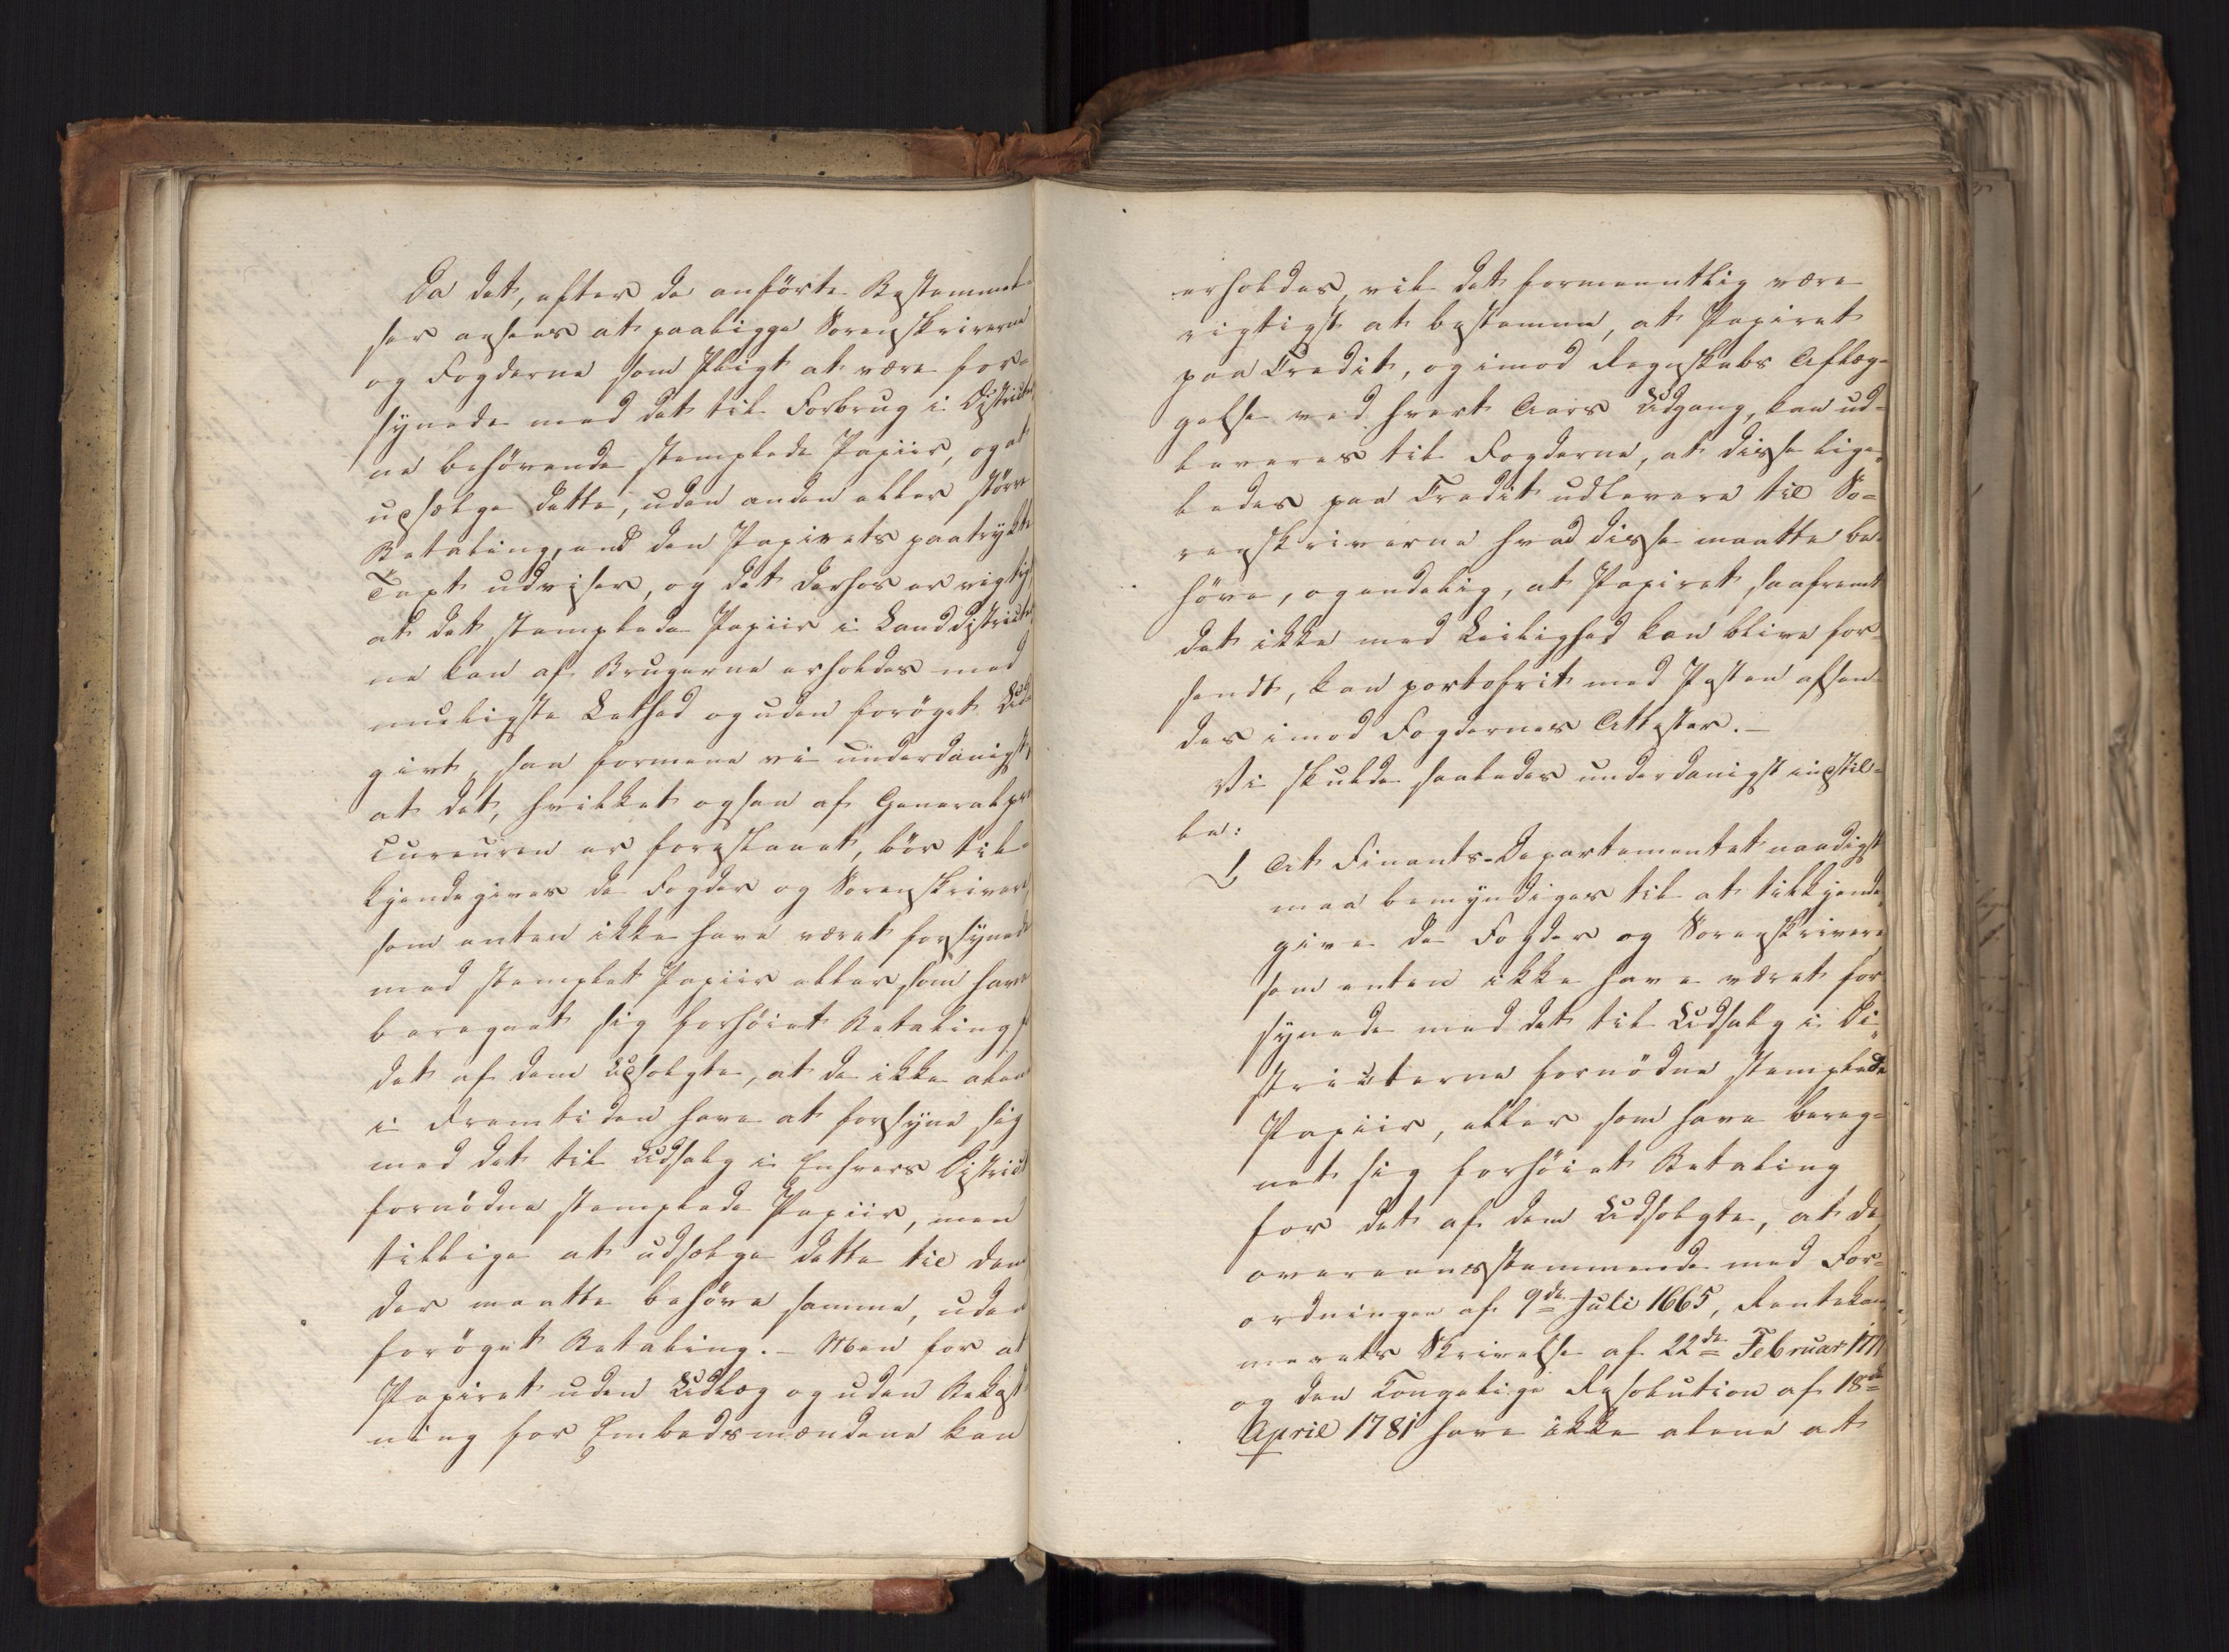 Da det, efter de anförte Bestemmel-
ser ansees at paaligge Sorenskriverne
og Fogderne som Pligt at være for-
synede med det til Forbrug i District
ne behövende stemplede Papiir, og at
upsælge dette, uden anden eller större
Betaling, end den Papirets paatrykte
Taxt udviser, og det derhos er vigtig
at det stemplede Papiir i Landdistricter
ne kan af Brugerne erholdes med
mueligste Lethed og uden forøget Ud-
givt, saa formene vi underdanigst,
at det, hvilket ogsaa af Generalpro
cureuren er foreslaaet, bör til-
kjendegives de Fogder og Sorenskrivere,
som enten ikke have været forsynede
med stemplet Papiir eller som have
beregnet sig forhöiet Betaling for
det af dem Upsolgte, at de ikke alene
i Fremtiden have at forsyne sig
med det til Udsalg i Enhvers District
fornödne stemplede Papiir, men
tillige at udsælge dette til den
der maatte behöve samme, uden
foröget Betaling. – Men for at
Papiret uden Udlæg og uden Bekost
ning for Embedsmændene kan
erholdes, vil det formeentlig være
rigtigst at bestemme, at Papiret
paa Credit, og imod Regnskabs Aflæg-
gelse ved hvert Aars Udgang, kan ud-
leveres til Fogderne, at disse lige-
ledes paa Credit udlevere til So-
renskriverne hvad disse maatte be-
höve, og endelig, at Papiret, saafremt
det ikke med Leilighed kan blive for-
sendt, kan portofrit med Posten afsen-
des imod Fogdernes Attester. –
Vi skulde saaledes underdanigst indstil-
le:
1, At Finants-Departementet naadigst
maa bemyndiges til at tilkjende-
give de Fogder og Sorenskrivere
som enten ikke have været for
synede med det til Udsalg i Di-
stricterne fornödne stemplede
Papiir, eller som have bereg-
net sig forhöiet Betaling
for det af dem Udsolgte, at de,
overeensstemmende med For-
ordningen af 9de Juli 1665, Rentekam
merets Skrivelse af 22de Februar 177
og den Kongelige Resolution af 18de
April 1781 have ikke alene at